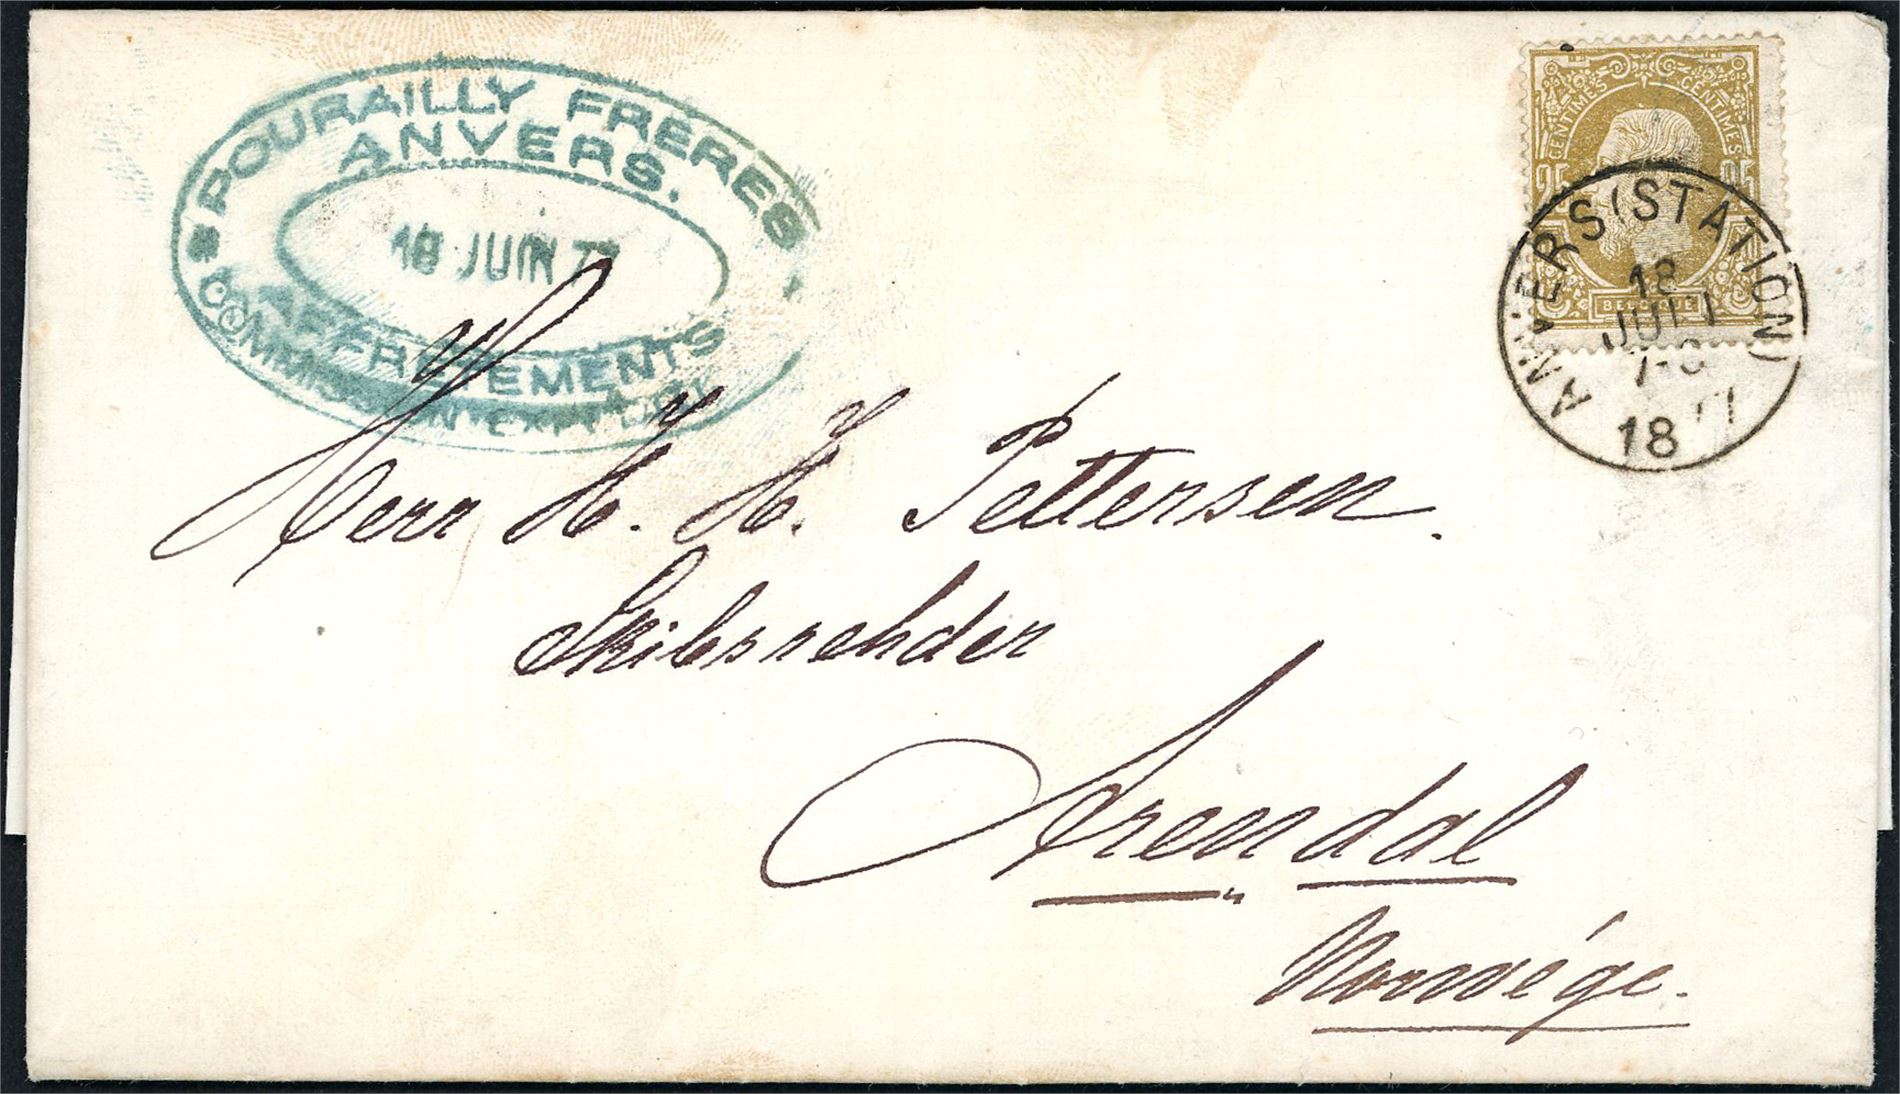 POURAILLY FRÈRES
ANVERS.
18 JUIN 77
AFFRETEMENTS
COMMISSION EXPEDITN
CENTIMES CENTIMES
25 25
BELGIQUE
ANVERS (STATION)
18
JUIN
7-8
1877
Herr H. H. Pettersen.
Skibsrehder
Arendal
Norvége.